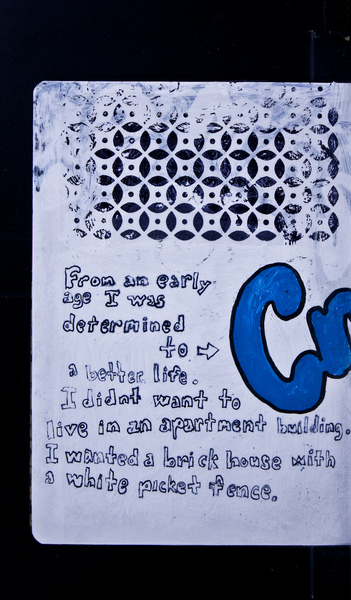 From an early
age I was
determined
to →
a better life.
I didnt want to
live in an apartment building.
I wanted a brick house with
a white picket fence.